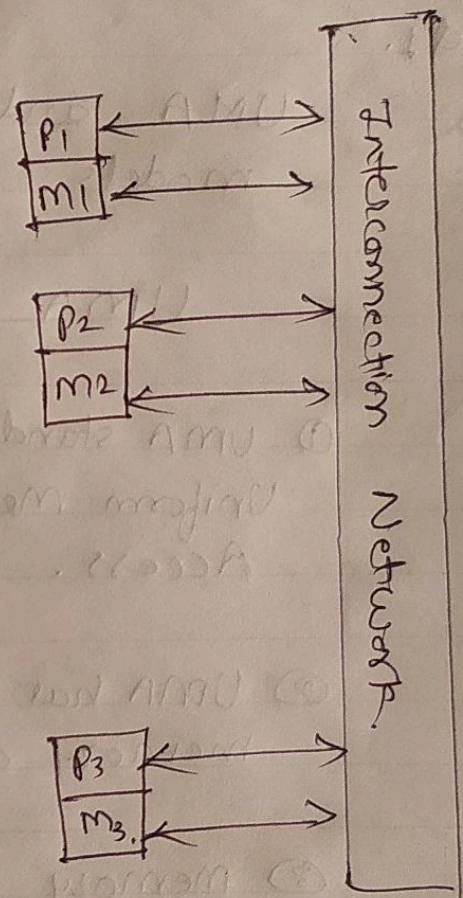 P1
M1
P2
M2
P3
M3.
Interconnection Network.